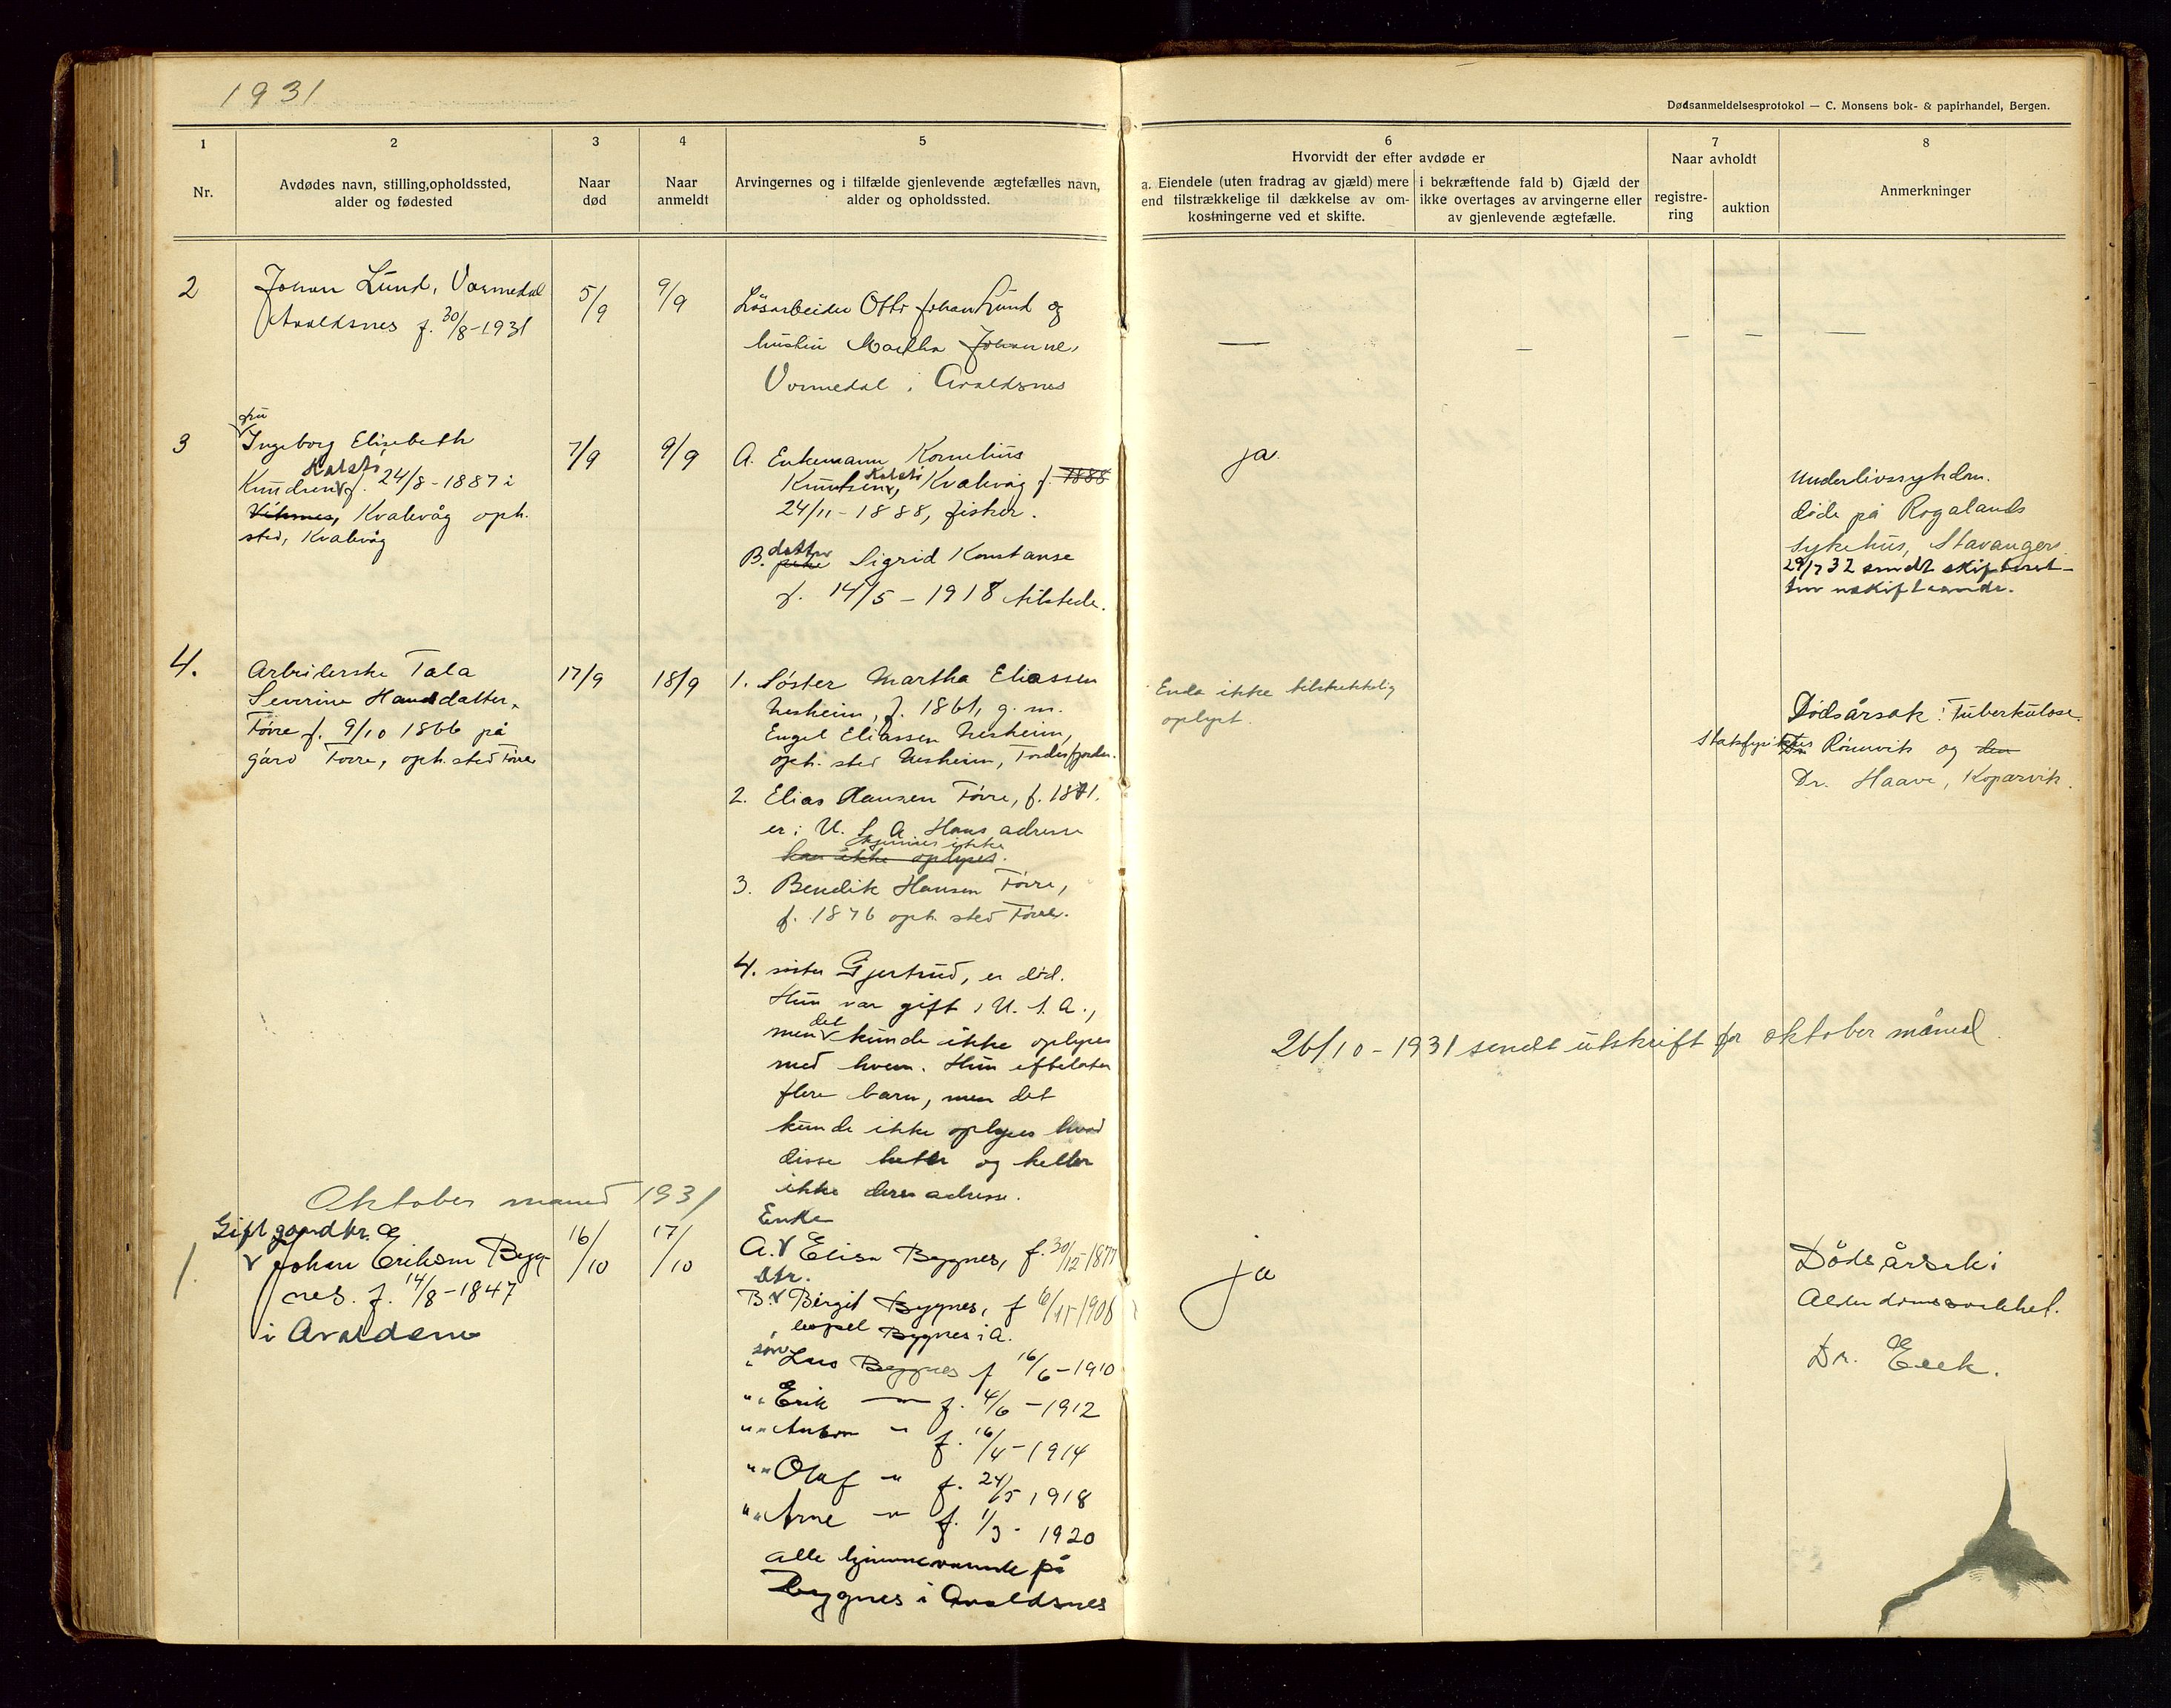 1931
Dødsanmeldelsesprotokol — C. Monsens bok- & papirhandel, Bergen.
1
Nr.
2
Avdødes navn, stilling, opholdssted,
alder og fødested
3
Naar
død
4
Naar
anmeldt
5
Arvingernes og i tilfælde gjenlevende ægtefælles navn,
alder og opholdssted.
6
Hvorvidt der efter avdøde er
a. Eiendele (uten fradrag av gjæld) mere
end tilstrækkelige til dækkelse av om-
kostningerne ved et skifte.
i bekræftende fald b) Gjæld der
ikke overtages av arvingerne eller
av gjenlevende ægtefælle.
7
Naar avholdt
registre-
ring
auktion
8
Anmerkninger
2
Johan Lund, Vormedal
Avaldsnes f. 30/8-1931
5/9
9/9
Løsarbeider Otto Johan Lund og
hustru Martha Johanne,
Vormedal i Avaldsnes
— — — — —
3
fru
Ingeborg Elisebeth
Kalstø,
Knudsen f. 24/8-1887 i
Kvalevåg oph.
sted, Kvalevåg
7/9
9/9
A. Enkemann Kornelius
Kalstø
Knutsen, Kvalevåg f. 1888
24/11-1888, fisker.
B. datter
Sigrid Konstanse
f. 14/5-1918 tilstede.
ja
Underlivssykdom.
døde på Rogalands
sykehus, Stavanger.
29/7 32 sendt skifteret-
ten
4.
Arbeiderske Tala
Severine Hansdatter,
Førre f. 9/10 1866 på
gård Førre, oph. sted Førre
17/9
18/9
1. Søster Martha Eliassen
Nesheim, f. 1861, g. m.
Engel Eliassen Nesheim,
oph. sted Nesheim,
2. Elias Hansen Førre, f. 1871.
er i U. S. A. Hans adresse
kan ikke oplyses.
3. Bendik Hansen Førre,
f. 1876 oph. sted Førre.
4. søster Gjertrud, er død.
Hun var gift i U. S. A.,
det
men kunde ikke oplyses
med hvem. Hun efterlater
flere barn, men det
kunde ikke oplyses hvad
disse heter og heller
ikke deres adresse.
Enda ikke tilstrekkelig
oplyst.
Dødsårsak: Tuberkulose.
Statsfysikus
Rønnvik og den
Dr. Haave, Kopervik.
26/10-1931 sendt utskrift for oktober måned.
Oktober måned 1931
Gift gaardbr.
1.
Johan Eriksen Byg-
nes. f. 14/8-1847
i Avaldsnes
16/10
17/10
Enke
A. Elisa Bygnes, f. 30/12-1877
dtr.
B. Birgit Bygnes, f 6/11-1906
Bygnes i A.
søn
" Lars Bygnes f 16/6-1910
" " Erik — f. 4/6-1912
" " Anton " f. 16/4-1914
" " Olaf " f. 24/5 1918
" " Arne " f. 1/3-1920
alle hjemmeværende på
Bygnes i Avaldsnes
ja
Dødsårsak:
Alderdomssvakhet.
Dr. Eeek.